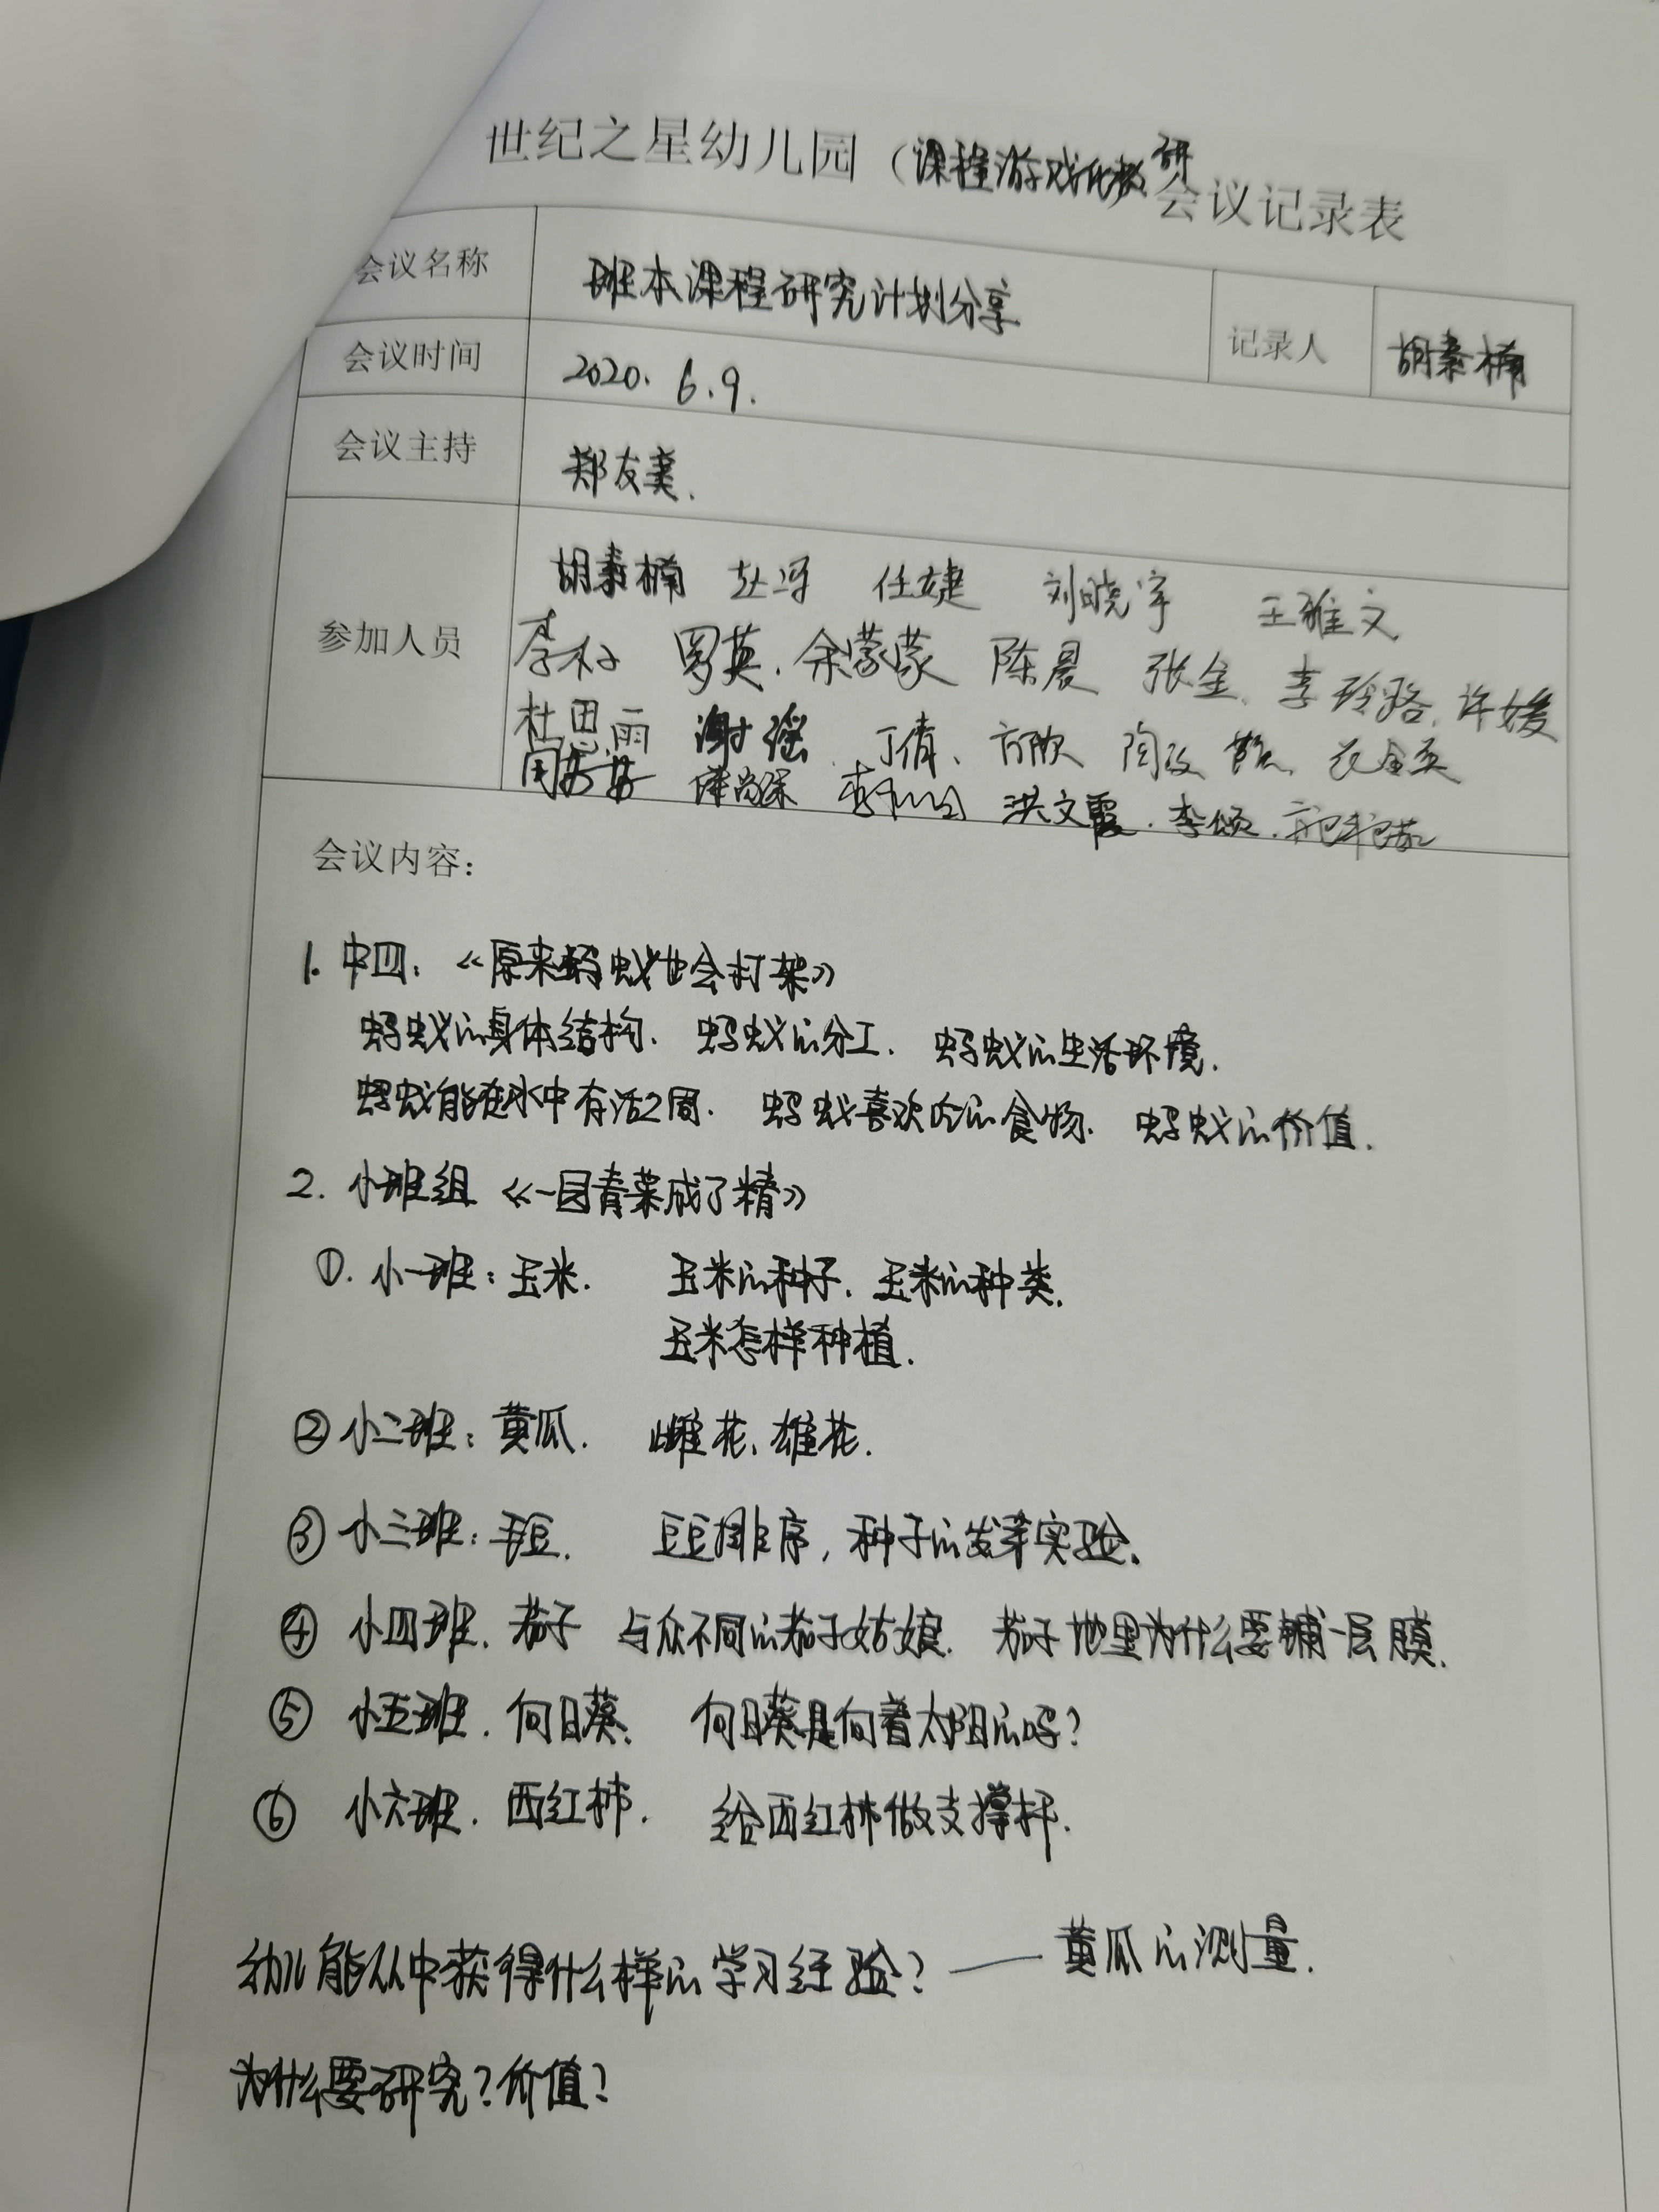 世纪之星幼儿园（课程游戏化教研）会议记录表
会议名称 班本课程研究计划分享 记录人 胡素楠
会议时间 2020.6.9.
会议主持 郑友美.
参加人员 胡素楠 赵冴 任婕 刘晓宇 王雅文
罗英. 余蒙蒙 陈晨 张金. 李玲璐. 许媛
杜思雨 谢瑶. 丁倩、方欣
洪文霞. 李颂.
会议内容：
1. 中四：《原来蚂蚁也会打架》
蚂蚁的身体结构. 蚂蚁的分工. 蚂蚁的生活环境.
蚂蚁能在水中存活2周. 蚂蚁喜欢吃的食物. 蚂蚁的价值.
2. 小班组《一园青菜成了精》
①. 小一班：玉米. 玉米的种子. 玉米的种类.
玉米怎样种植.
② 小二班：黄瓜. 雌花、雄花.
③ 小三班：毛豆. 豆豆排序，种子的发芽实验.
④ 小四班. 茄子 与众不同的茄子姑娘. 茄子地里为什么要铺一层膜.
⑤ 小五班. 向日葵. 向日葵是向着太阳的吗？
⑥ 小六班. 西红柿. 给西红柿做支撑杆.
幼儿能从中获得什么样的学习经验？——黄瓜的测量.
为什么要研究？价值？